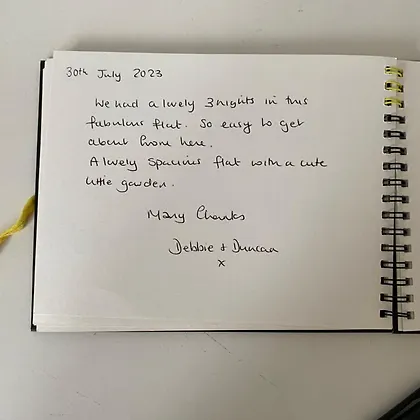 30th July 2023
We had a lovely 3 nights in this
fabulous flat. So easy to get
about from here.
A lovely spacious flat with a cute
little garden.
Many Thanks
Debbie & Duncan
x